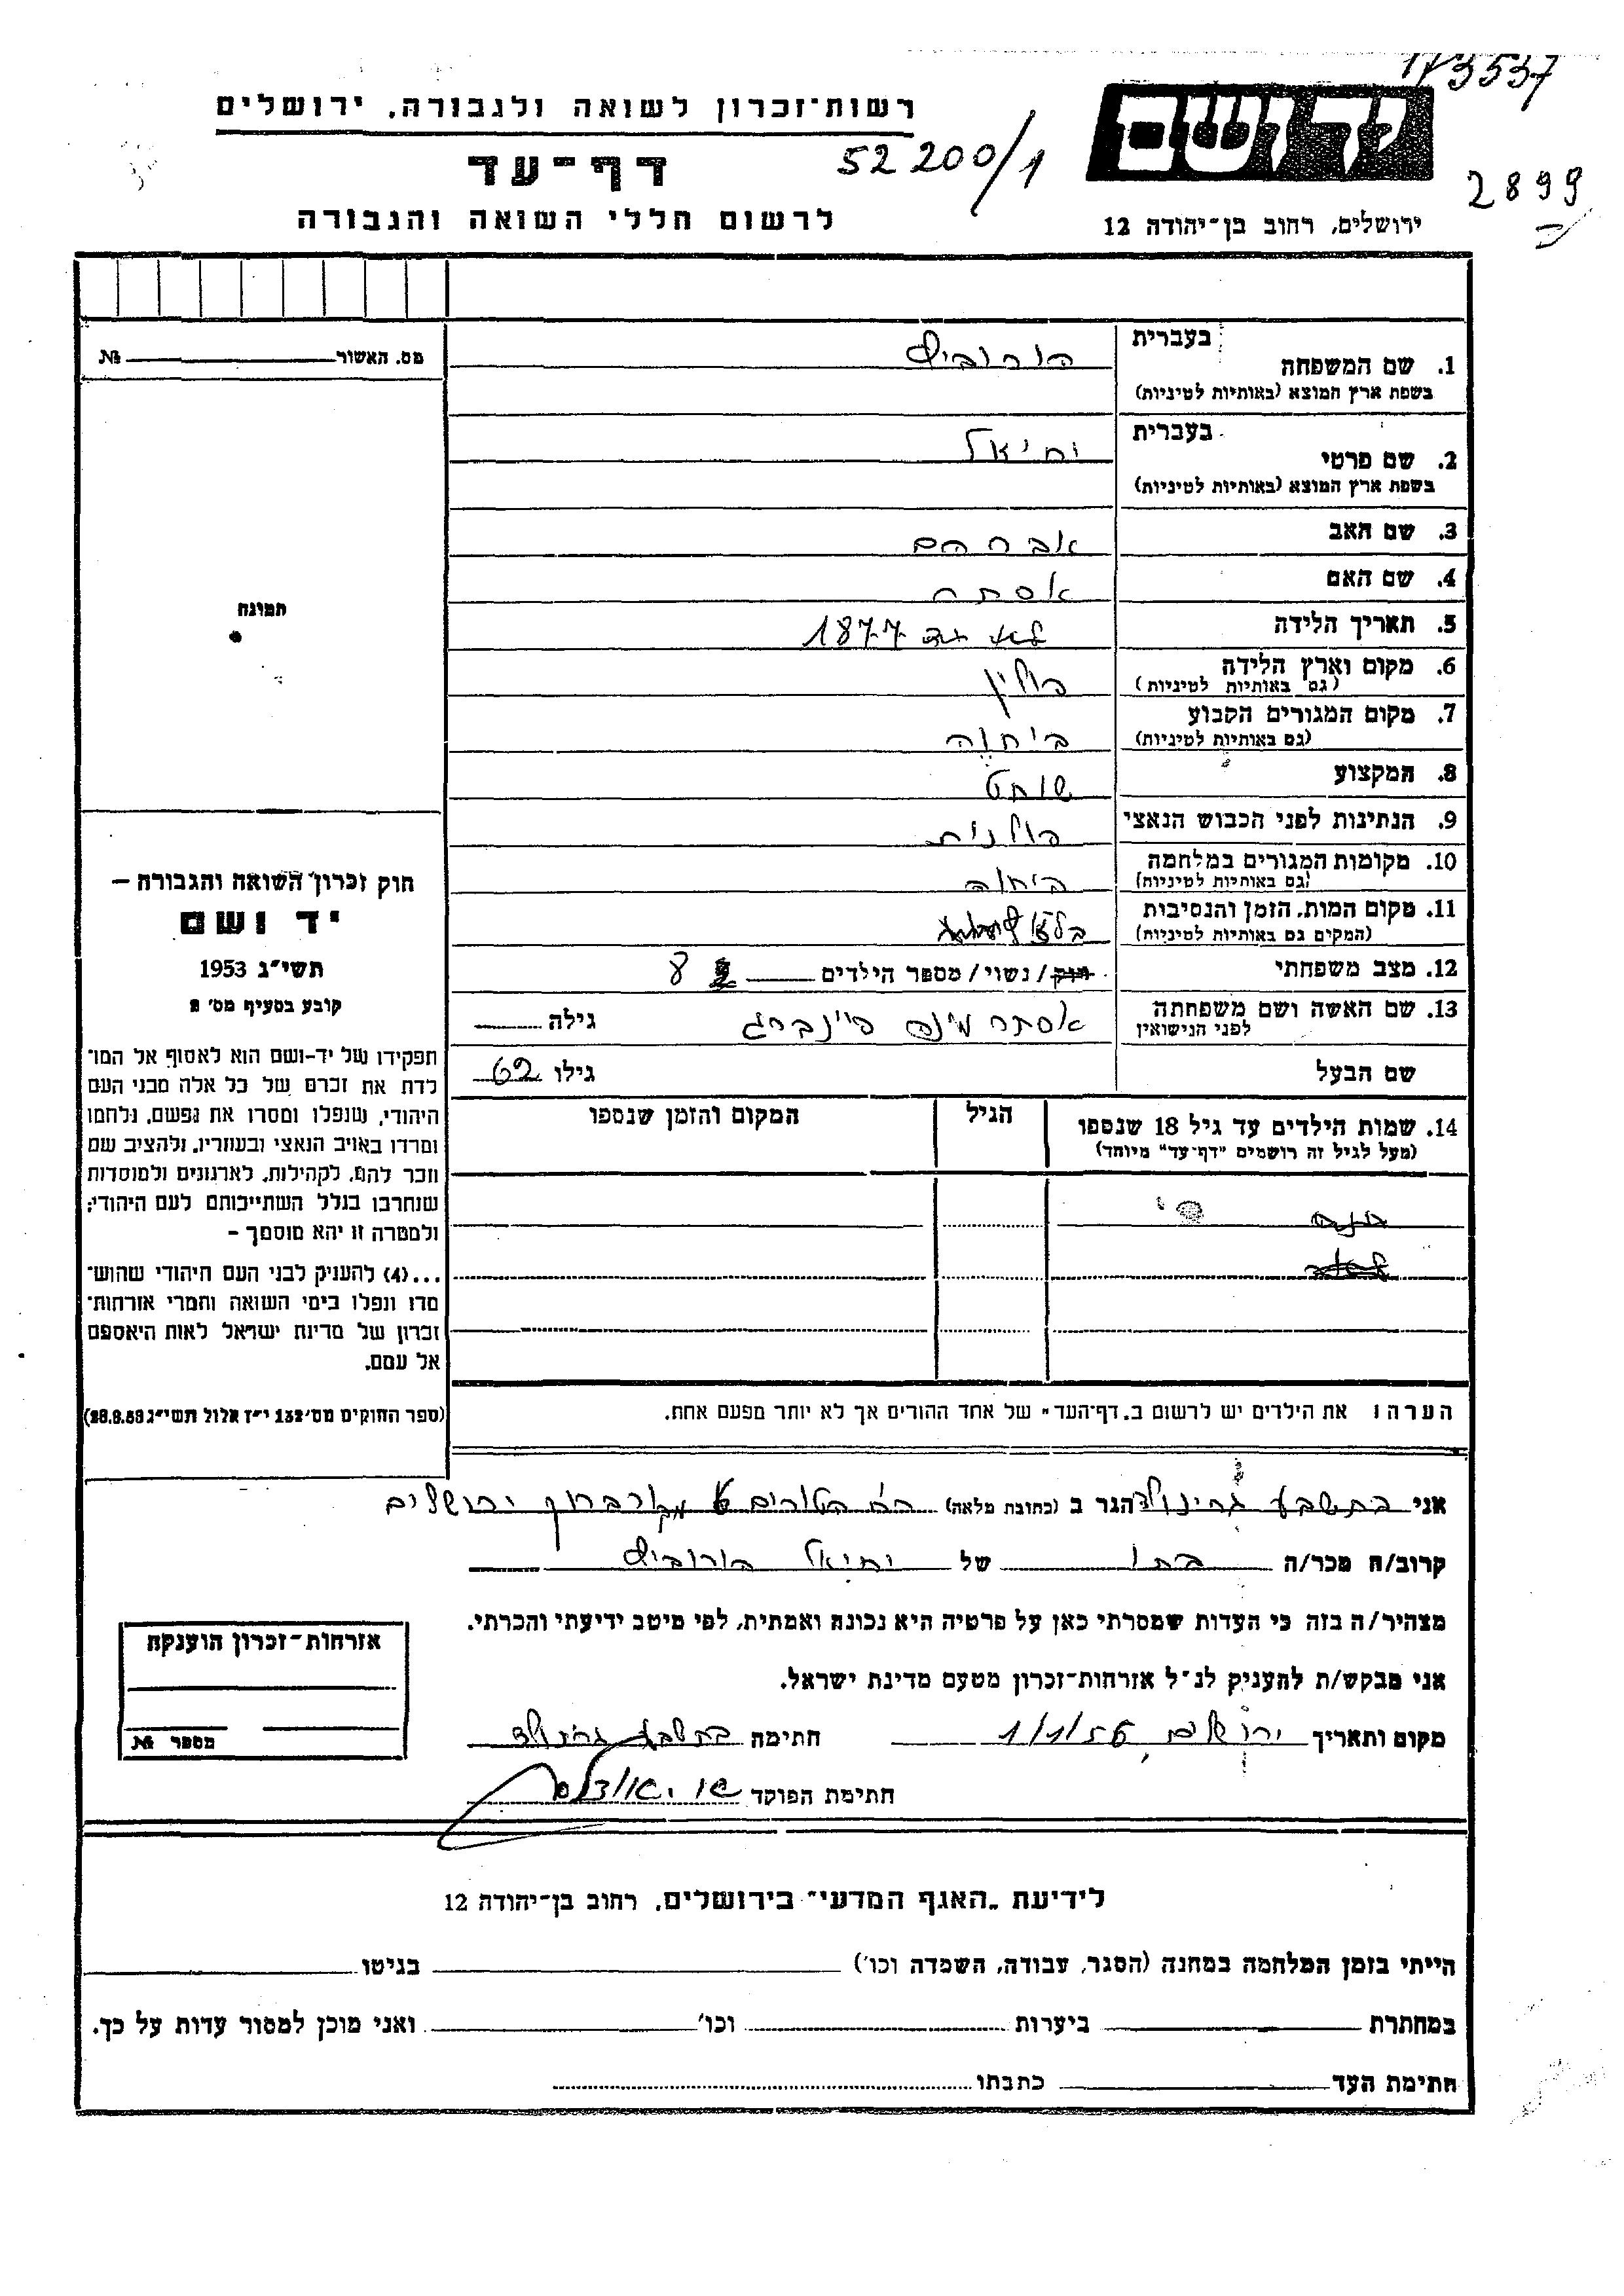 173537
רשות־זכרון לשואה ולגבורה, ירושלים
52200/1
יד ושם
דף־עד
2899
לרשום חללי השואה והגבורה
ירושלים, רחוב בן־יהודה 12
מס. האשור № 
בעברית
1. שם המשפחה הורוביץ
בשפת ארץ המוצא (באותיות לטיניות)
בעברית
2. שם פרטי יחיאל
בשפת ארץ המוצא (באותיות לטיניות)
3. שם האב אברהם
4. שם האם אסתר
תמונה
5. תאריך הלידה 1877
6. מקום וארץ הלידה פולין
(גם באותיות לטיניות)
7. מקום המגורים הקבוע
(גם באותיות לטיניות)
8. המקצוע שוחט
9. הנתינות לפני הכבוש הנאצי פולנית
10. מקומות המגורים במלחמה
(גם באותיות לטיניות)
11. מקום המות, הזמן והנסיבות
(המקום גם באותיות לטיניות)
12. מצב משפחתי רוק/נשוי/מספר הילדים 8
13. שם האשה ושם משפחתה אסתר פיינברג גילה
לפני הנישואין
שם הבעל גילו 62
14. שמות הילדים עד גיל 18 שנספו הגיל המקום והזמן שנספו
(מעל לגיל זה רושמים "דף־עד" מיוחד)
חוק זכרון השואה והגבורה —
יד ושם
תשי"ג 1953
קובע בסעיף מס' 2
תפקידו של יד-ושם הוא לאסוף אל המו־
לדת את זכרם של כל אלה מבני העם
היהודי, שנפלו ומסרו את נפשם, נלחמו
ומרדו באויב הנאצי ובעוזריו, ולהציב שם
וזכר להם, לקהילות, לארגונים ולמוסדות
שנחרבו בגלל השתייכותם לעם היהודי;
ולמטרה זו יהא מוסמך –
...(4) להעניק לבני העם היהודי שהוש־
מדו ונפלו בימי השואה והמרי אזרחות־
זכרון של מדינת ישראל לאות היאספם
אל עמם.
(ספר החוקים מס' 132 י"ז אלול תשי"ג 28.8.53)
הערה: את הילדים יש לרשום ב„דף־העד" של אחד ההורים אך לא יותר מפעם אחת.
אני בתשבע גרינולד הגר ב (כתובת מלאה) ירושלים
קרוב/ה מכר/ה בתו של יחיאל הורוביץ
מצהיר/ה בזה כי העדות שמסרתי כאן על פרטיה היא נכונה ואמתית, לפי מיטב ידיעתי והכרתי.
אני מבקש/ת להעניק לנ"ל אזרחות־זכרון מטעם מדינת ישראל.
מקום ותאריך ירושלים, 1/1/56 חתימה בתשבע גרינולד
חתימת הפוקד
אזרחות־זכרון הוענקה
מספר №
לידיעת „האגף המדעי" בירושלים, רחוב בן־יהודה 12
הייתי בזמן המלחמה במחנה (הסגר, עבודה, השמדה וכו') בגיטו
במחתרת ביערות וכו' ואני מוכן למסור עדות על כך.
חתימת העד כתבתו